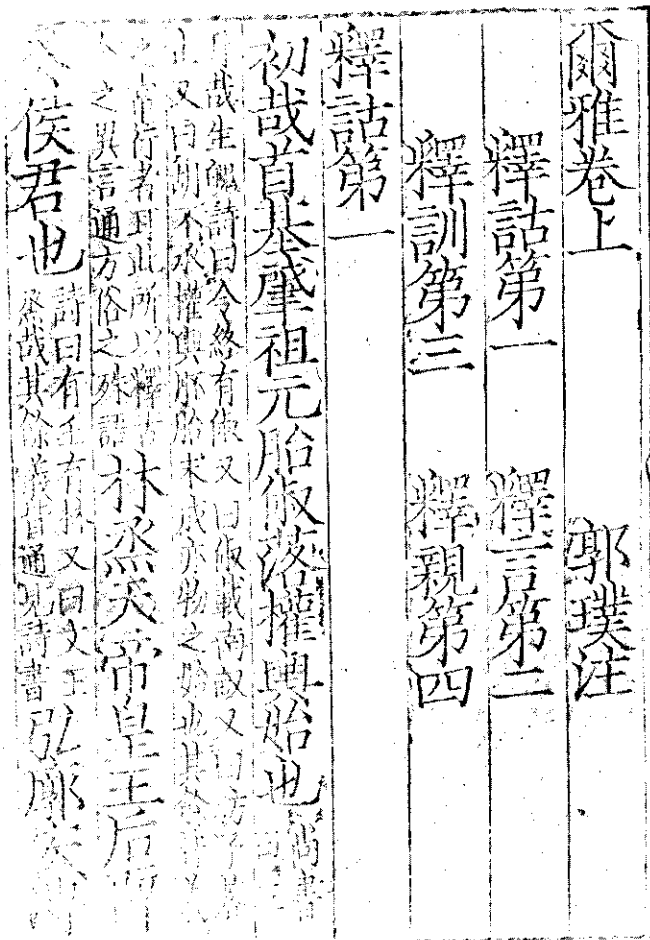 爾雅卷上 郭璞注
釋詁第一 釋言第二
釋訓第三 釋親第四
釋詁第一
初哉首基肇祖元胎俶落權輿始也尚書
哉生魄詩曰令終有俶又曰俶載南畝又曰訪予落
止又曰胡不承權輿胚胎未成亦物之始也其
之常行者耳此所以釋古
之異言通方俗之殊語 林烝天帝皇王后
侯君也 詩曰有壬有林又曰文王
烝哉其餘義皆通見詩書 弘廓